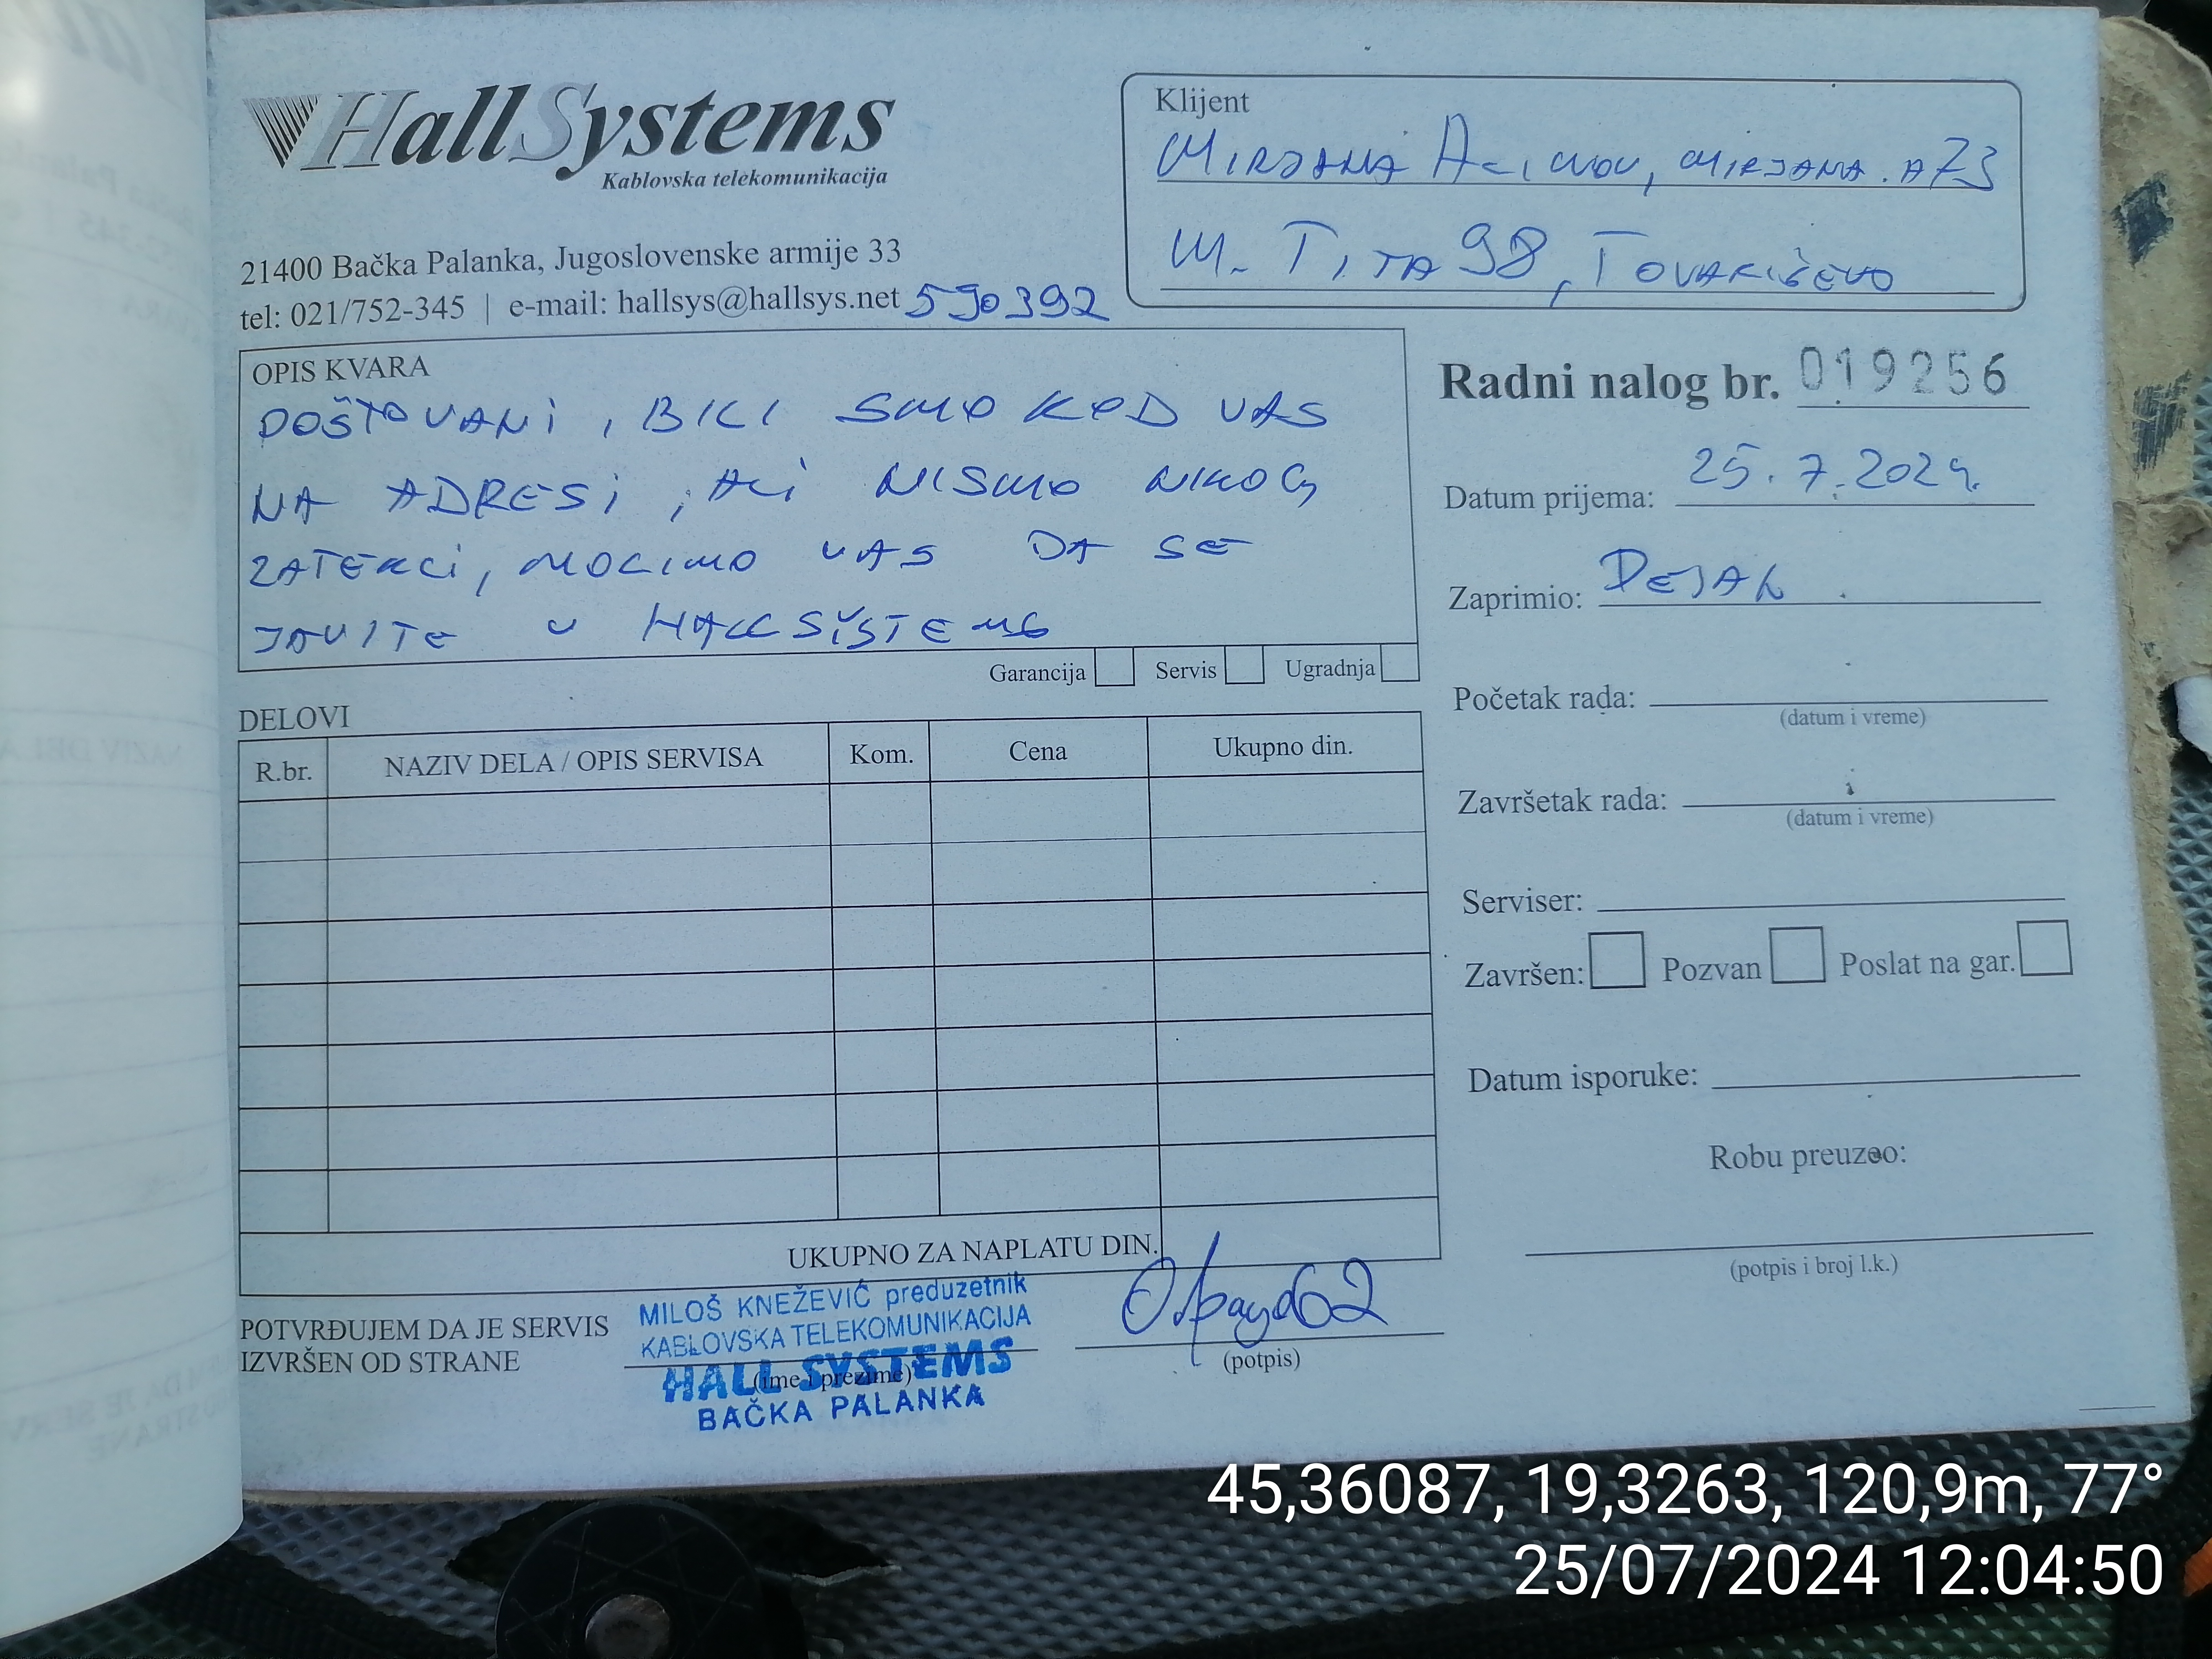 HallSystems
Kablovska telekomunikacija
21400 Bačka Palanka, Jugoslovenske armije 33
tel: 021/752-345 | e-mail: hallsys@hallsys.net 590392
Klijent
MIRJANA AĆIMOV, MIRJANA.A73
M. TITA 98, TOVARIŠEVO
OPIS KVARA
POŠTOVANI, BILI SMO KOD VAS
NA ADRESI, ALI NISMO NIKOG
ZATEKLI, MOLIMO VAS DA SE
JAVITE U HALL SYSTEMS
Garancija Servis Ugradnja
Radni nalog br. 019256
Datum prijema: 25.7.2024.
Zaprimio: DEJAN
Početak rada:
(datum i vreme)
Završetak rada:
(datum i vreme)
Serviser:
Završen: Pozvan Poslat na gar.
Datum isporuke:
Robu preuzeo:
(potpis i broj l.k.)
DELOVI
R.br. NAZIV DELA / OPIS SERVISA Kom. Cena Ukupno din.
UKUPNO ZA NAPLATU DIN.
POTVRĐUJEM DA JE SERVIS
IZVRŠEN OD STRANE
MILOŠ KNEŽEVIĆ preduzetnik
KABLOVSKA TELEKOMUNIKACIJA
HALL SYSTEMS
(ime i prezime)
BAČKA PALANKA
(potpis)
45,36087, 19,3263, 120,9m, 77°
25/07/2024 12:04:50